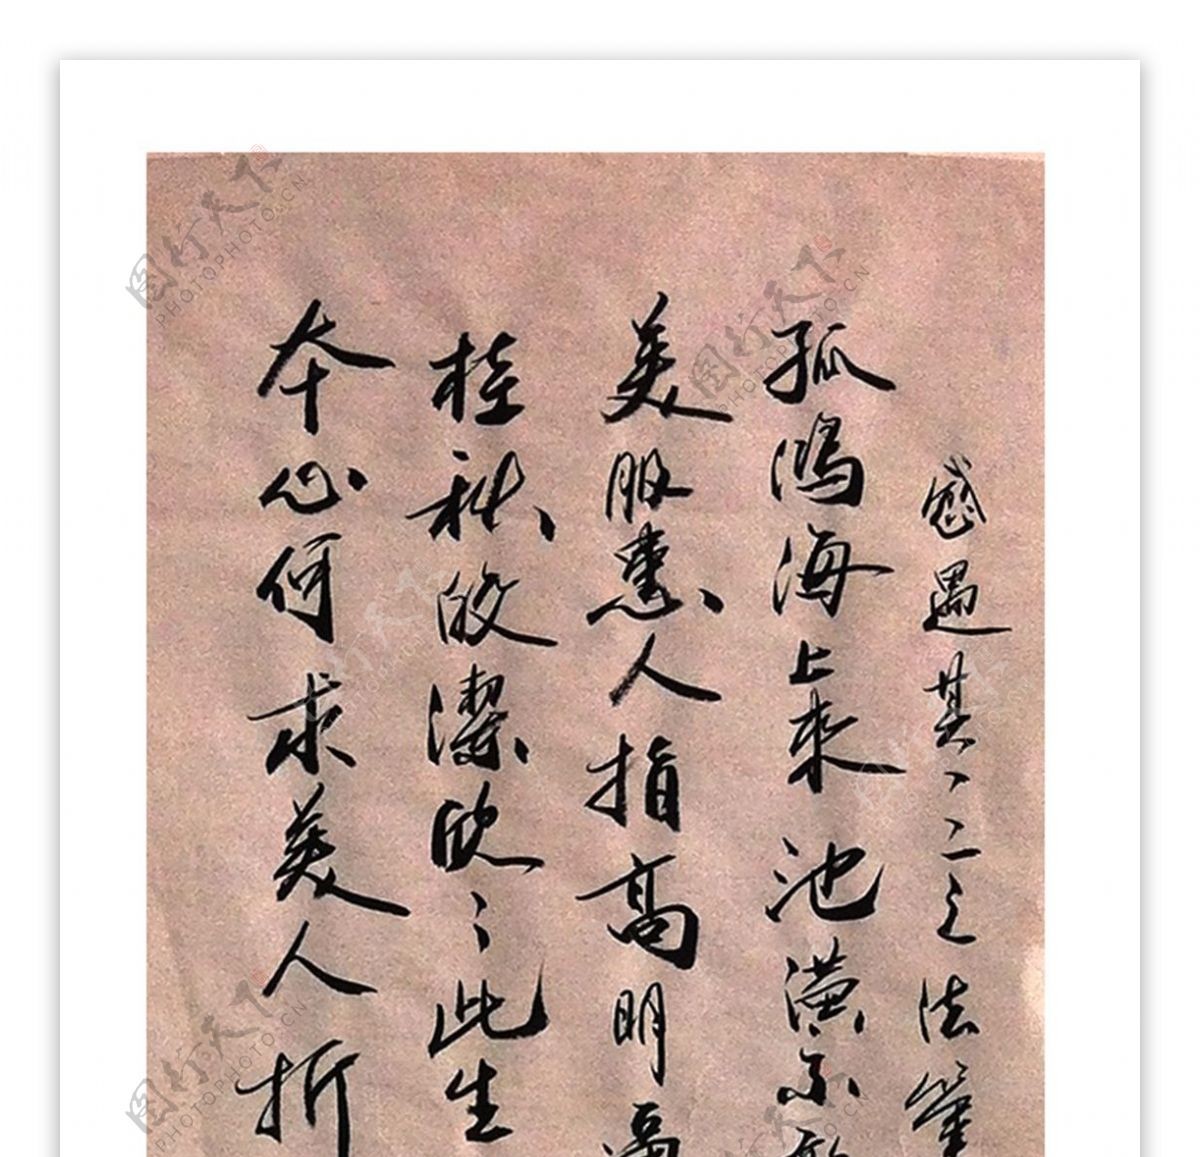 感遇其一二之法筆
孤鴻海上來池潢不
美服患人指高明
桂秋皎潔欣〻此生
本心何求美人折
图行天下
PHOTOPHOTO.CN